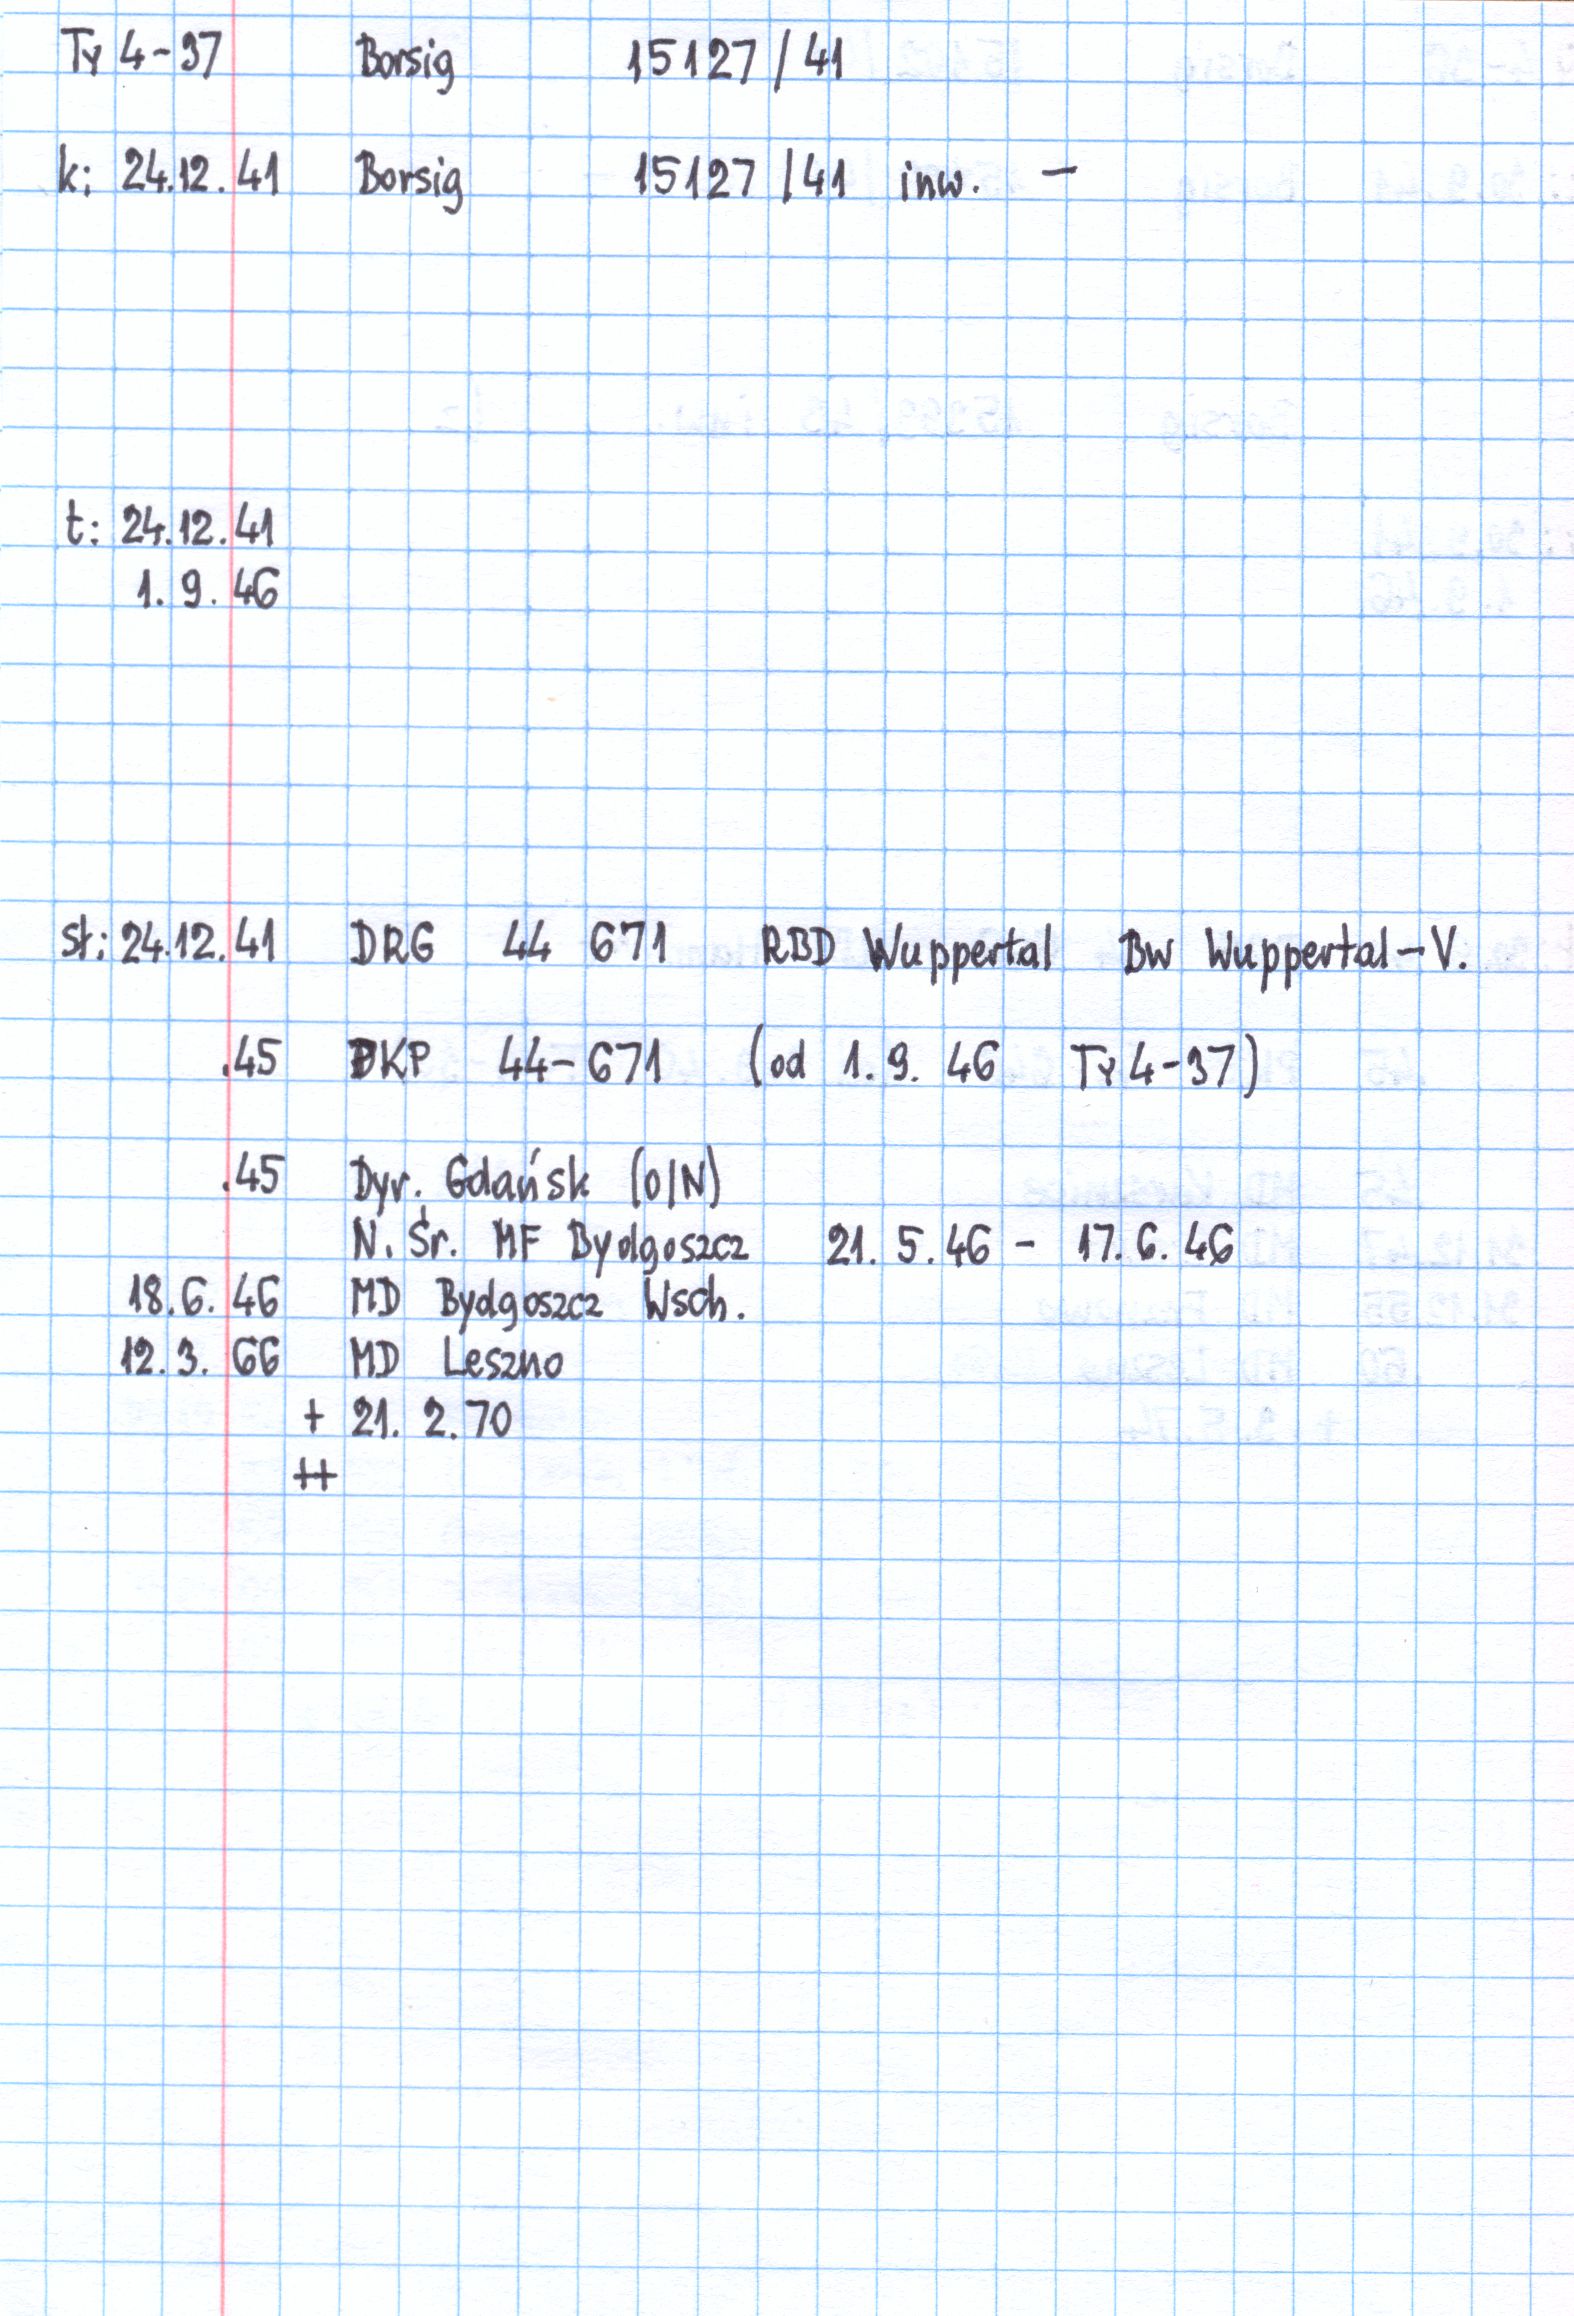 Ty 4-37 Borsig 15127/41
k: 24.12.41 Borsig 15127/41 inw. -
t: 24.12.41
1.9.46
st: 24.12.41 DRG 44 671 RBD Wuppertal BW Wuppertal-V.
.45 PKP 44-671 (od 1.9.46 Ty 4-37)
.45 Dyr. Gdańsk (O/N)
N. Śr. MF Bydgoszcz 21.5.46 - 17.6.46
18.6.46 MD Bydgoszcz Wsch.
12.3.66 MD Leszno
+ 21.2.70
++